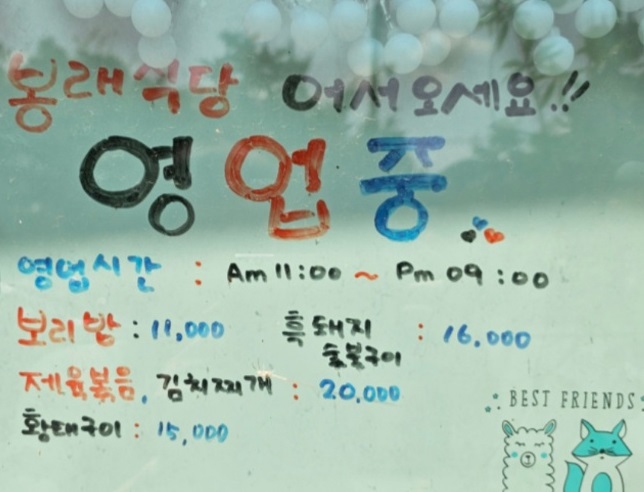 봉래식당 어서오세요.!!
영업중
영업시간 : Am 11:00 ~ Pm 09:00
보리밥 : 11,000 흑돼지 숯불구이 : 16,000
제육볶음, 김치찌개 : 20,000
황태구이 : 15,000
BEST FRIENDS